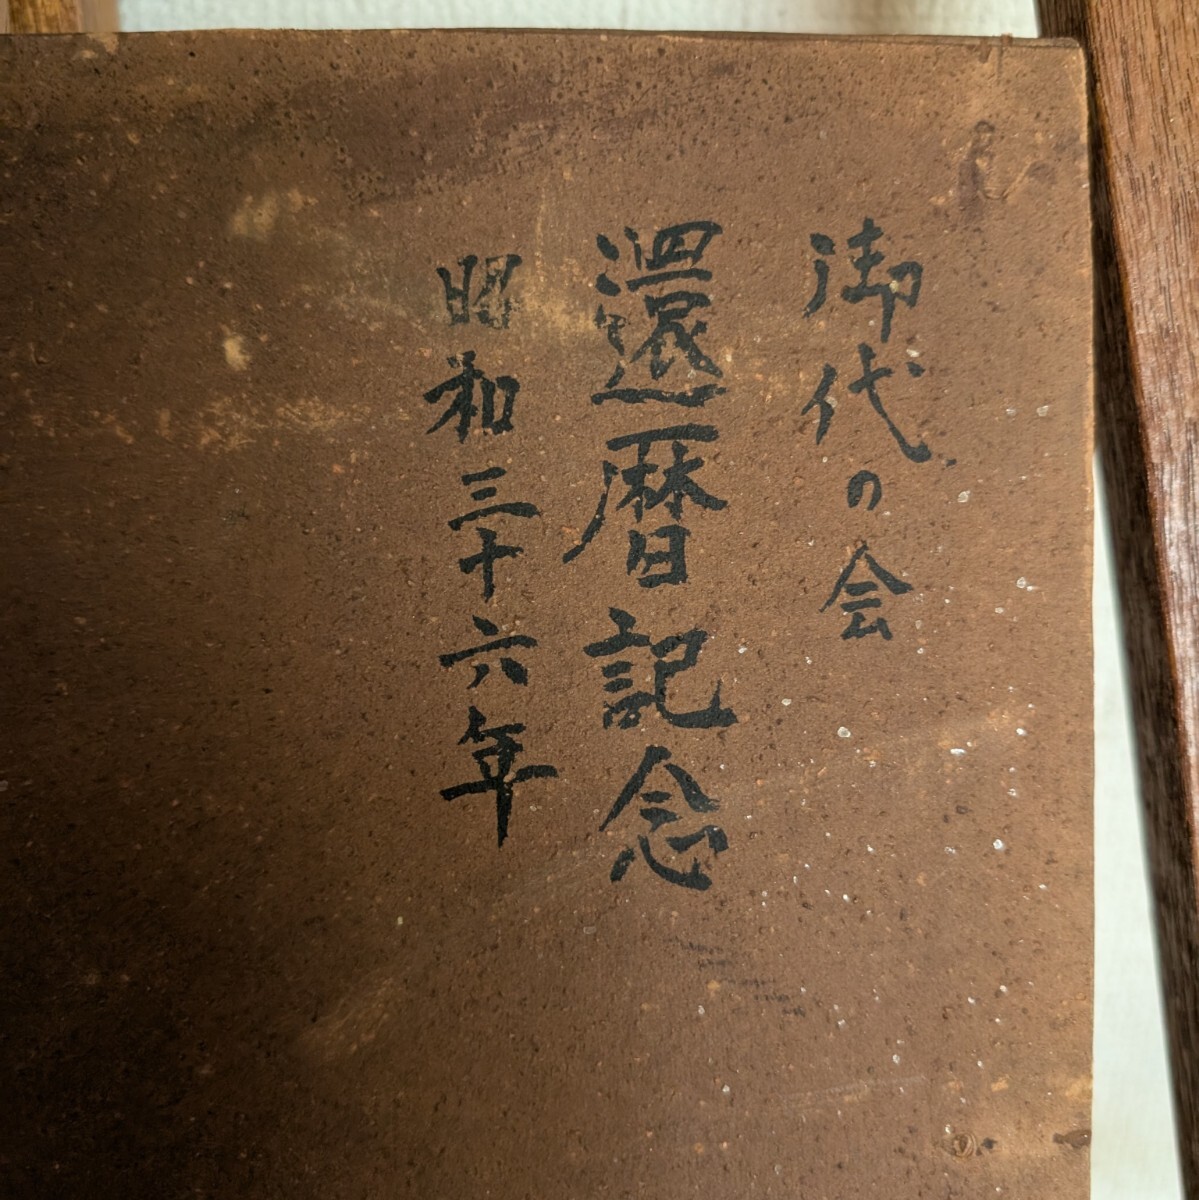 御代の会
還暦記念
昭和三十六年